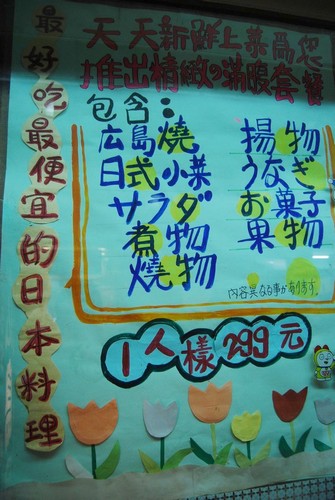 最好吃最便宜的日本料理
天天新鮮上菜為您
推出精緻的滿腹套餐
包含：
広島燒
日式小菜
サラダ
煮物
燒物
揚物
うなぎ
お菓子
果物
内容異なる事があります。
1人様299元